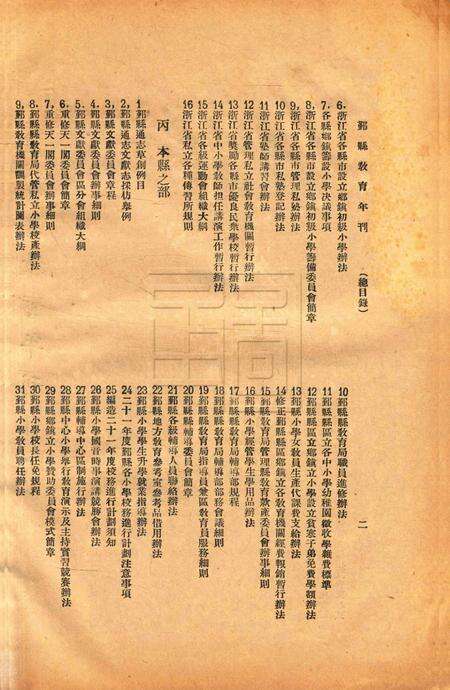 鄞縣教育年刊 (總目錄) 二
6.浙江省各縣市設立鄉鎮初級小學辦法
7.各縣鄉鎮籌設小學決議事項
8.浙江省各縣市設立鄉鎮初級小學籌備委員會簡章
9.浙江省各縣市管理私塾辦法
10浙江省各縣市私塾登記辦法
11浙江省塾師講習會辦法
12浙江省管理私立社會教育機關暫行辦法
13浙江省獎勵各縣市優良民衆學校暫行辦法
14浙江省中小學教師担任講演工作暫行辦法
15浙江省各級運動會組織大綱
16浙江省私立各種傳習所規則
丙 本縣之部
1鄞縣通志草創例目
2,鄞縣通志文獻志採訪舉例
3,鄞縣文獻委員會章程
4.鄞縣文獻委員會辦事細則
5.鄞縣文獻委員會區分會組織大綱
6.重修天一閣委員會簡章
7,重修天一閣委員會辦事細則
8.鄞縣縣教育局代管私立小學校產辦法
9,鄞縣教育機關調製統計圖表辦法
10鄞縣縣教育局職員進修辦法
11鄞縣縣區立各中小學幼稚園徵收學雜費標準
12鄞縣縣區立鄉鎮立小學設立貧寒子弟免費學額辦法
13鄞縣小學教員生產代課費支給辦法
14修正鄞縣縣區鄉鎮立各教育機關經費報銷暫行辦法
15鄞縣教育局管理縣教育款產委員會辦事細則
16鄞縣小學經管學生學用品辦法
17鄞縣縣教育局輔導部規程
18鄞縣縣教育局輔導部務會議細則
19鄞縣縣教育局指導員兼區教育員服務細則
20鄞縣各級輔導委員會簡章
21鄞縣各級輔導人員聯絡辦法
22鄞縣地方教育參考室參考品借用辦法
23鄞縣小學學生升學就業指導辦法
24二十一年度鄞縣各小學校務進行計劃注意事項
25編造二十一年度校務進行計劃須知
26鄞縣小學國音時事演講競勝會辦法
27鄞縣輔導中心區制施行辦法
28鄞縣中心小學舉行教育演示及主持實習競賽辦法
29鄞縣鄉鎮立小學贊助委員會模式簡章
30鄞縣小學校長任免規程
31鄞縣小學教員聘任辦法